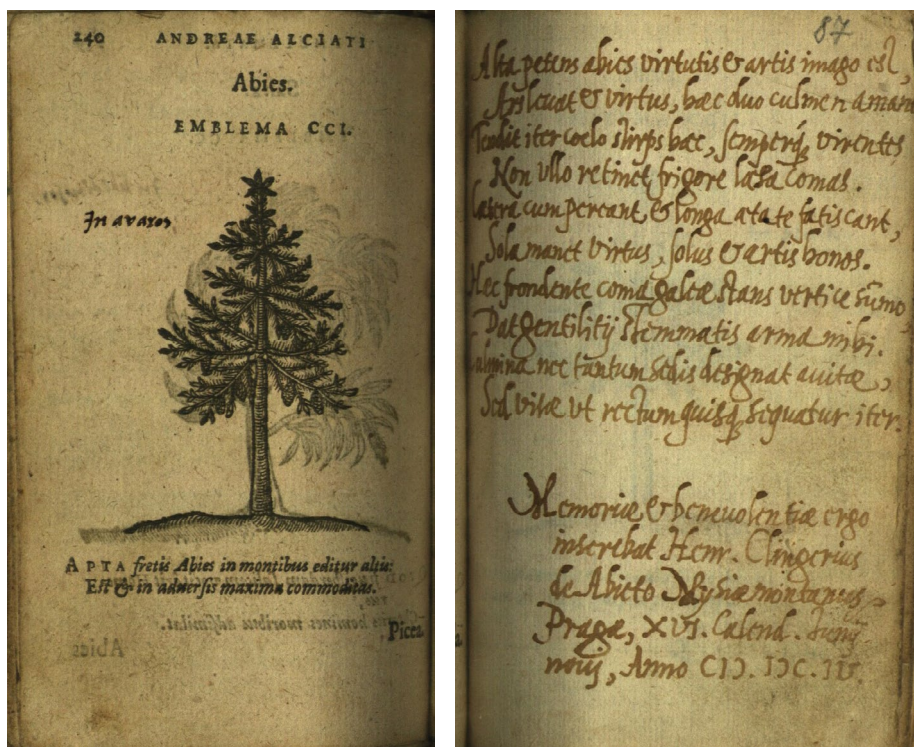 240 ANDREAE ALCIATI
Abies.
EMBLEMA CCI.
In avaros
APTA fretis Abies in montibus editur altis:
Est & in adversis maxima commoditas.
Picea
87
Alta petens abies virtutis & artis imago est,
Ars levat & virtus, hæc duo culmen amant
Tendit iter coelo stirps hæc, semperq, virentes
Non vllo retinet frigore læsa comas.
Cætera cum pereant, & longa ætate fatiscant,
Sola manet virtus, solus & artis honos.
Hec frondente coma galeæ stans vertice sūmo,
Dat gentilitij stemmatis arma mihi.
Culmina nec tantum sedis designat avitæ,
Sed vitæ vt rectum quisq, sequatur iter.
Memoriæ & benevolentiæ ergo
inserebat Henr. Clingerius
de Abieto Mysiæmontanus
Pragæ, XVI. Calend. Junij
novj, Anno CIↃ. IↃC. IV.